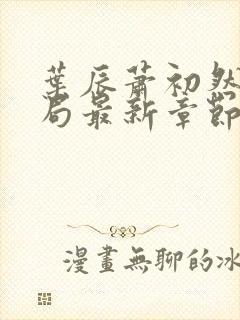 葉辰蕭初然
局最新章節
漫畫無聊的冰